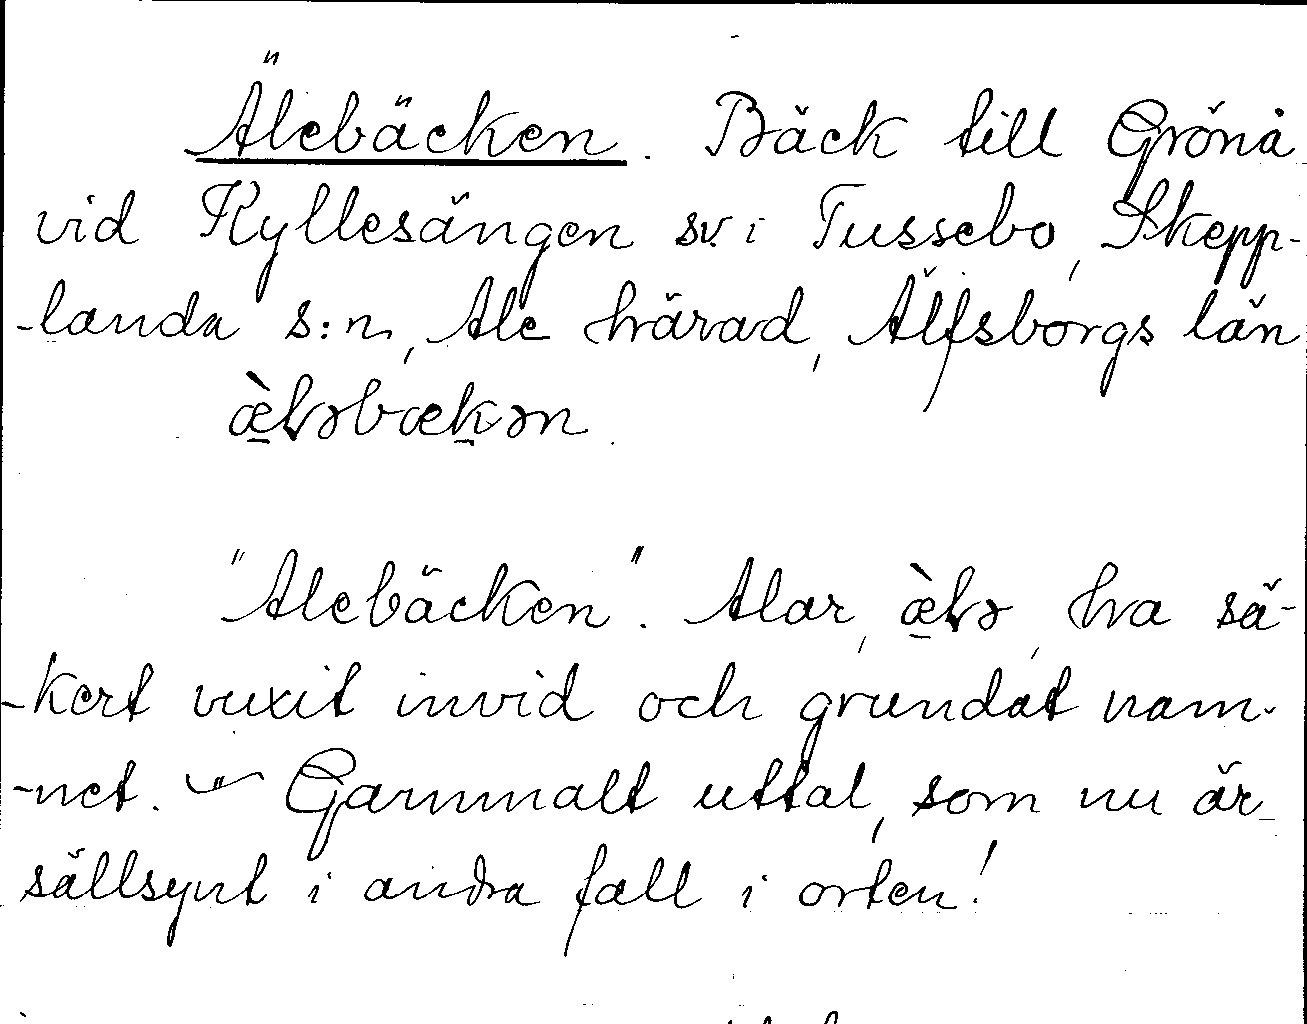 Älebäcken. Bäck till Grönå
vid Kyllesängen sv. i Tussebo, Skepp-
-landa s:n, Ale härad, Älfsborgs län
æ̀ɽəbækən.
"Alebäcken". Alar, æ̀ɽə, ha sä-
-kert vuxit invid och grundat nam-
-net. — Gammalt uttal, som nu är
sällsynt i andra fall i orten!